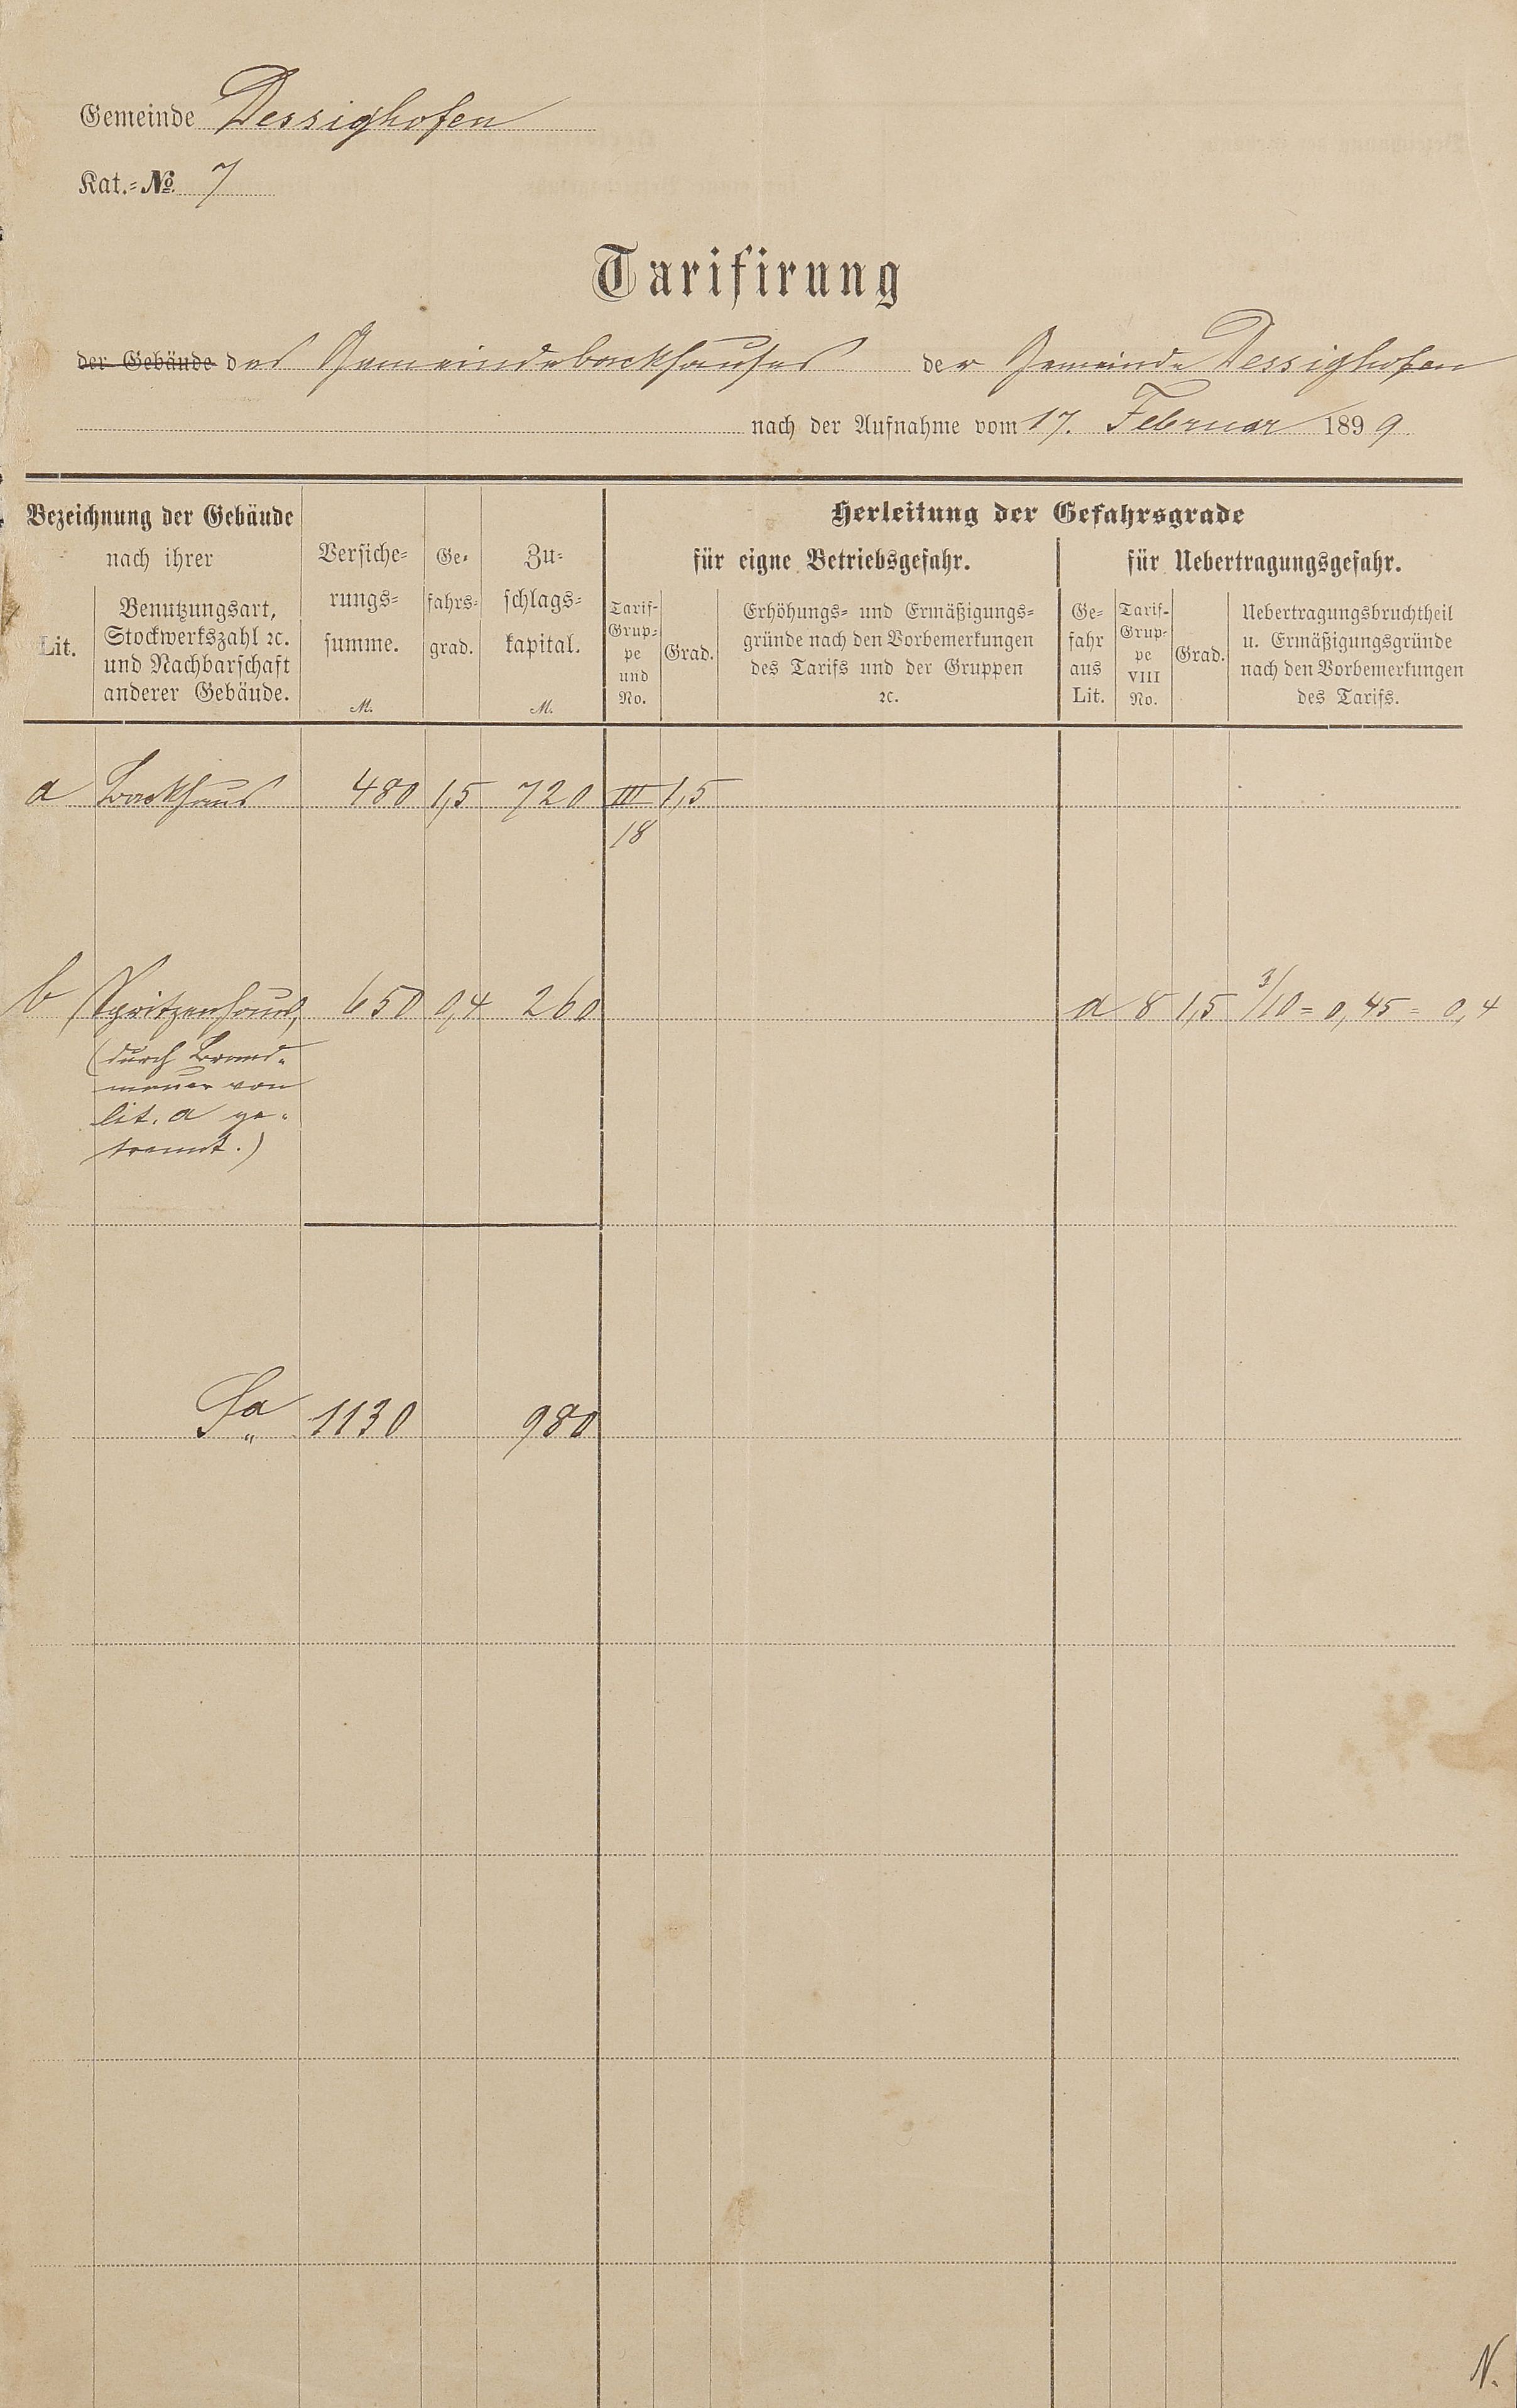 Gemeinde Dessighofen
Kat.-No. 7
Tarifirung
der Gebäude des Gemeindebackhauses der Gemeinde Dessighofen
nach der Aufnahme vom 17. Februar 1899
Bezeichnung der Gebäude
nach ihrer
Lit.
Benutzungsart,
Stockwerkszahl ꝛc.
und Nachbarschaft
anderer Gebäude.
Versiche-
rungs-
summe.
M.
Ge-
fahrs-
grad.
Zu-
schlags-
kapital.
M.
Herleitung der Gefahrsgrade
für eigne Betriebsgefahr.
Tarif-
Grup-
pe
und
No.
Grad.
Erhöhungs- und Ermäßigungs-
gründe nach den Vorbemerkungen
des Tarifs und der Gruppen
ꝛc.
für Uebertragungsgefahr.
Ge-
fahr
aus
Lit.
Tarif-
Grup-
pe
VIII
No.
Grad.
Uebertragungsbruchtheil
u. Ermäßigungsgründe
nach den Vorbemerkungen
des Tarifs.
a Backhaus 480 1,5 720 III 1,5
18
b Spritzenhaus, 650 0,4 260 a 8 1,5 3/10 = 0,45 = 0,4
(durch Brand-
mauer von
lit. a ge-
trennt.)
Sa 1130 980
N.